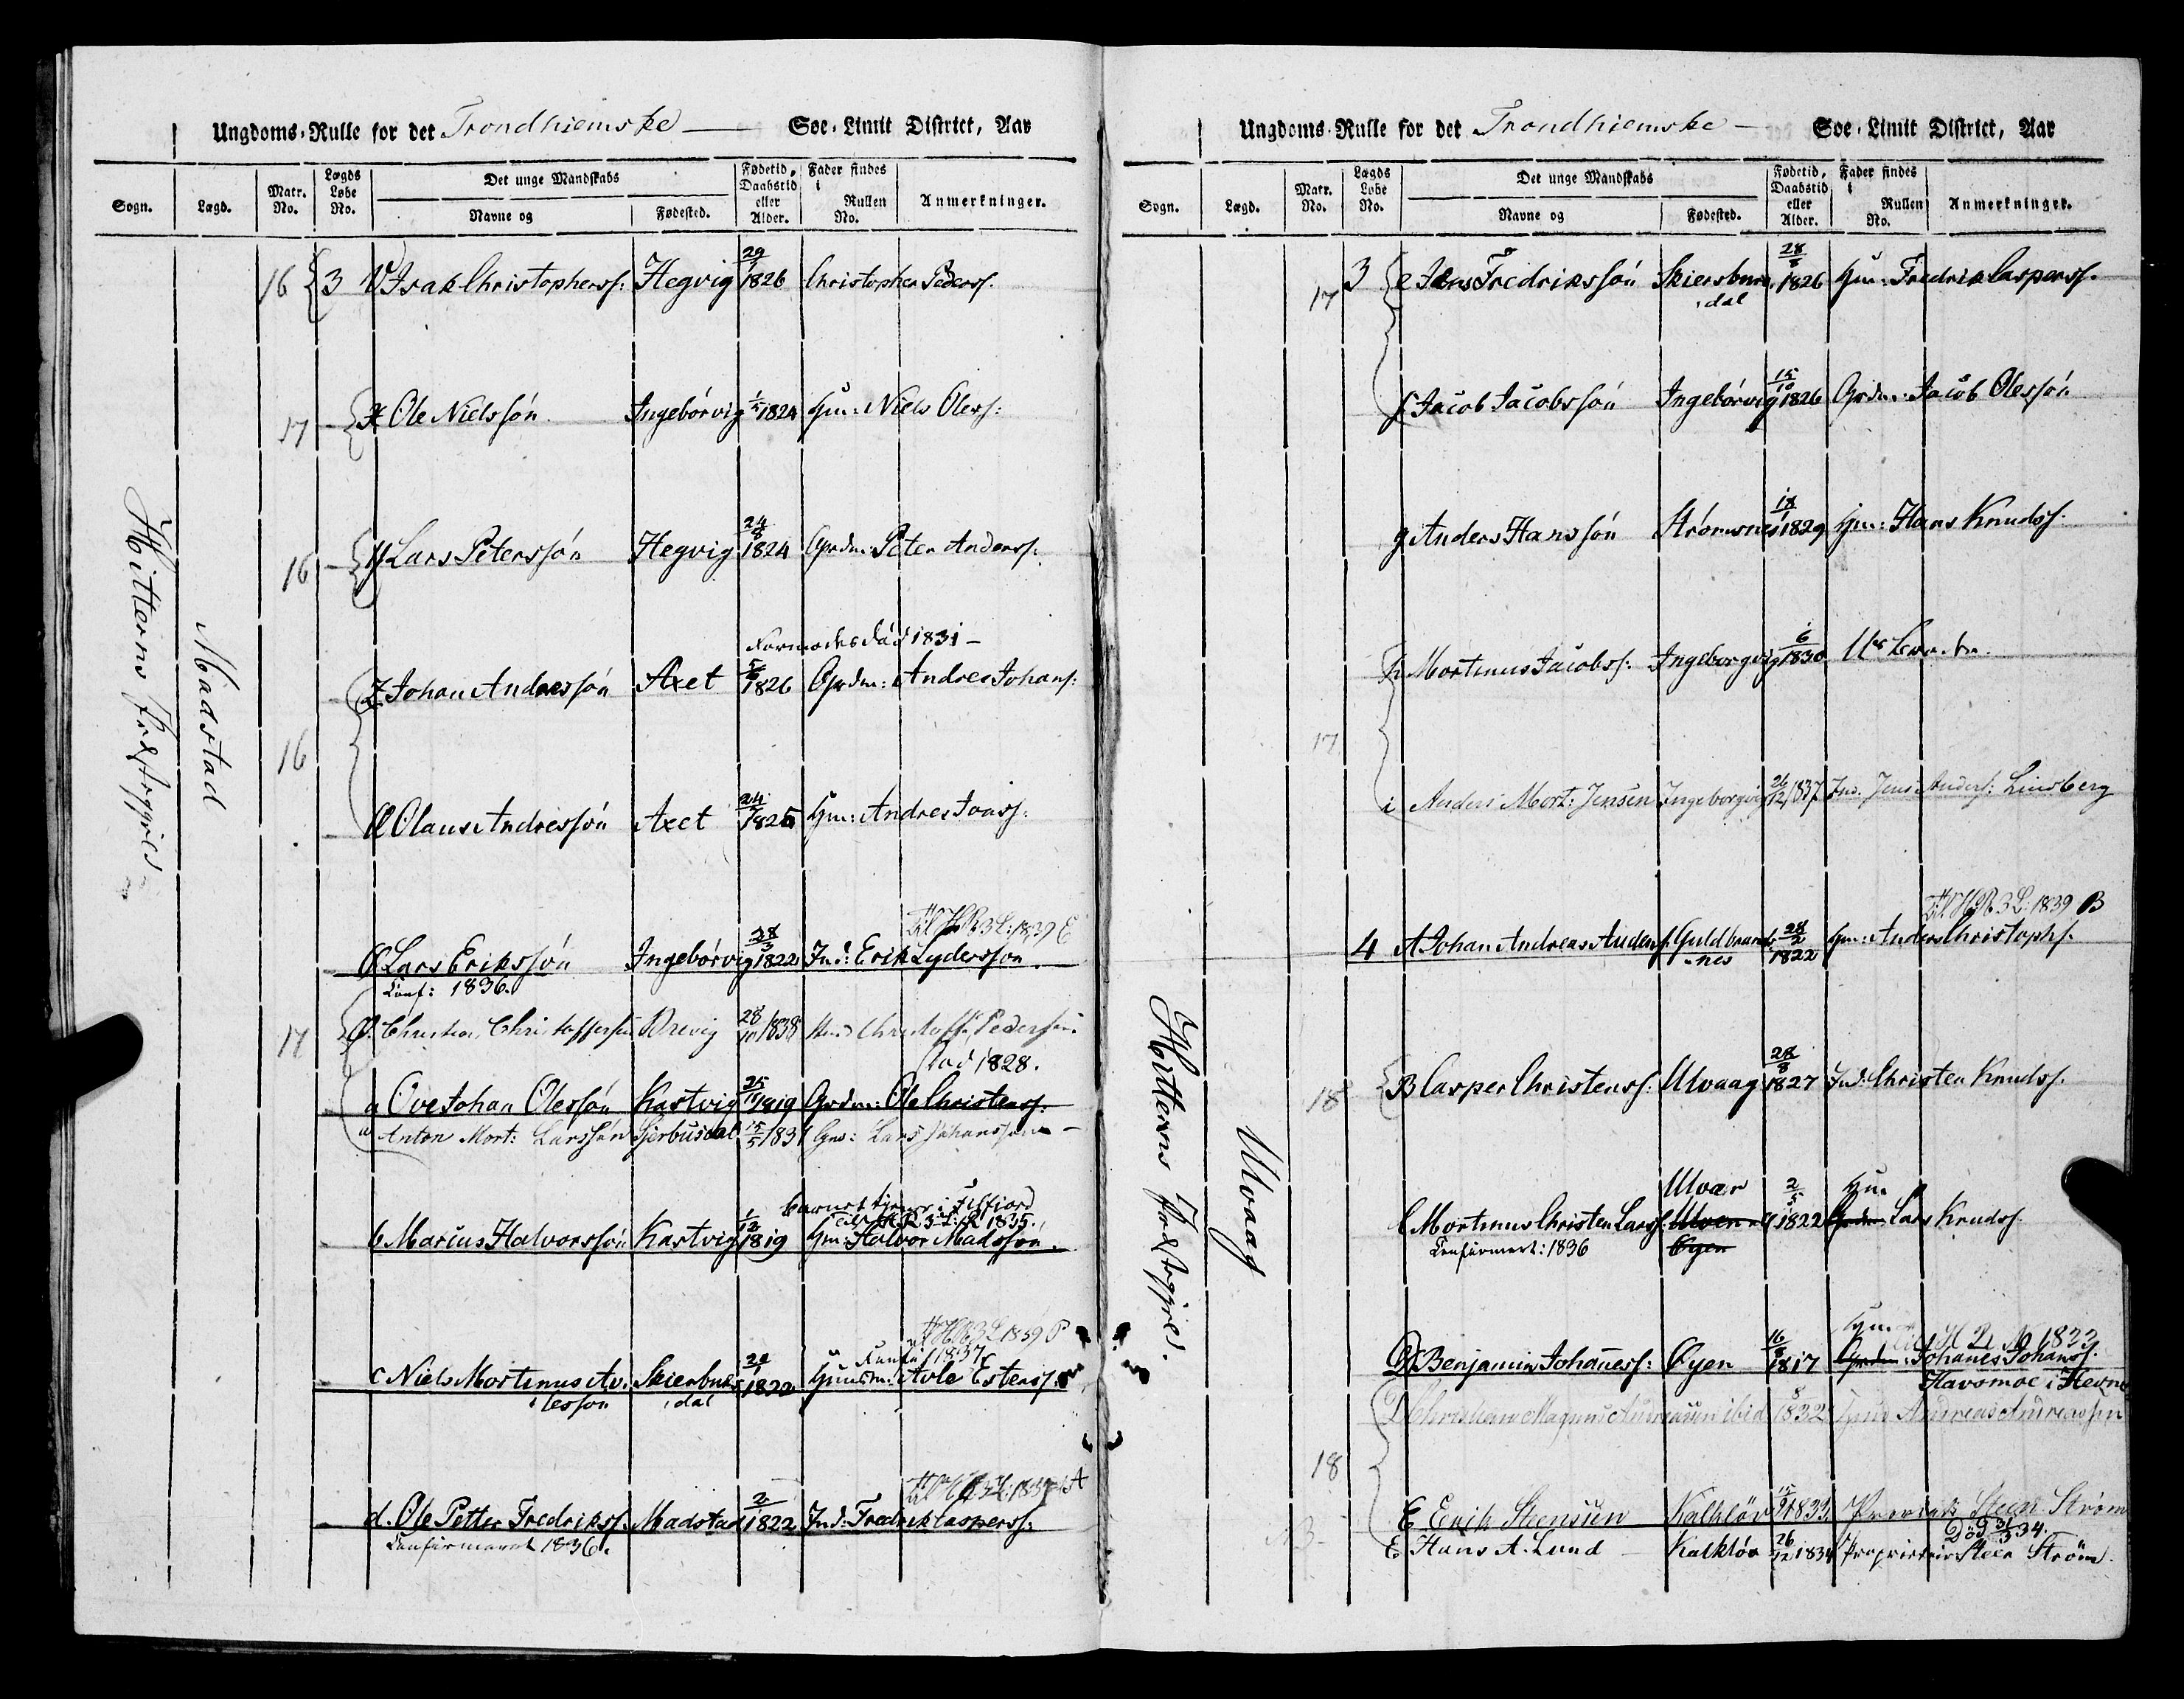 Ungdoms-Rulle for det Trondhiemske — Søe-Limit District, Aar
Sogn. Lægd. Matr. No. Lægds Løbe No. Det unge Mandskabs Navne og Fødested. Fødetid, Daabstid eller Alder. Fader findes i Rullen No. Anmerkninger.
Hitterns Præstegjel
Madstad
16 3 V Isak Christophers: Hegvig 29/ 1826 Christopher Peders.
17 X Ole Nielssøn Ingebørvig 1/5 1824 Hm: Niels Oless:
16 Y Lars Peterssøn Hegvig 24/8 1824 Grdm: Peter Anderss:
død 1831 —
16 Z Johan Andressøn Axet 5/ 1826 Grdm: Andres Johans:
Olaus Andressøn Axet 24/ 1825 Hm: Andres Joass:
Til H.R. 3 L: 1839 E
Lars Erikssøn Ingebørvig 28/3 1822 Ind: Erik Lydersson
Conf: 1836.
17 Ø. Christian Christoffersen Brevig 28/10 1838 Christoff. Pedersen
død 1828.
a Ove Johan Olessøn Kastvig 25/ 1819 Grdm: Ole Christens:
a Anton Mort: Larssøn Sjerbusdal 15/5 1831 Gm: Lars Johanssøn —
tjener i Fiffiord
Til H.R. 3 L: R 1835.
b Marius Halvorssøn Kastvig 1/12 1819 Hm: Halvor Madssøn.
H.R. 3 L 1839 P
1837
c Niels Mortinus Av:lesson Skierbusdal 1822 Huusm: Avle Estenss.
Til H.R. 3 L: 183 A
d. Ole Petter Fredrikss. Madstad 2/ 1822 Ind: Fredrik Caspers:
Confirmeret 1836.
Ungdoms-Rulle for det Trondhiemske — Søe-Limit District, Aar
Sogn. Lægd. Matr. No. Lægds Løbe No. Det unge Mandskabs Navne og Fødested. Fødetid, Daabstid eller Alder. Fader findes i Rullen No. Anmerkninger.
Hitterns Præstegjel.
Ulvaag
17 3 e Jens Fredrikssøn Skiersbusdal 28/8 1826 Hm: Fredrik Caspers.
f Jacob Jacobssøn Ingebørvig 15/10 1826 Grdm: Jacob Olessøn
g Anders Hanssøn Strømsnes 18/1 1829 Hm: Hans Knudss.
17 h Mortinus Jacobss: Ingeborgvig 6/ 1830
i Anders Mort: Jensen Ingeborgvig 26/12 1837 Ind. Jens Anders: Linsberg
Til H.R. 3 L: 1839 B
4 A Johan Andreas Anders. Guldbrandsnes 28/2 1822 Hm: Anders Christophs.
18 B Casper Christenss: Ulvaag 28/8 1827 Ind: Christen Knudss.
Ulvær Hm
C Mortinus Christen Larss. 2/5 1822 Lars Knudss.
Confirmert: 1836 Øyen
Hm H.R. N 1833
D Benjamin Johaness: Øyen 16/8 1817 Grdm: Johanes Johans.
Havomoe i Hevne
D Christian Magnus Andreasen ibid 8/ 1832 Andreas Andreassen
18 E Erik Steensen Kalkløv 15/9 1833 Propriet: Steen Strøm
Død 31/3 34.
E Hans A. Lund — Kalkløv 26/12 1834 Proprietair Steen Strøm.